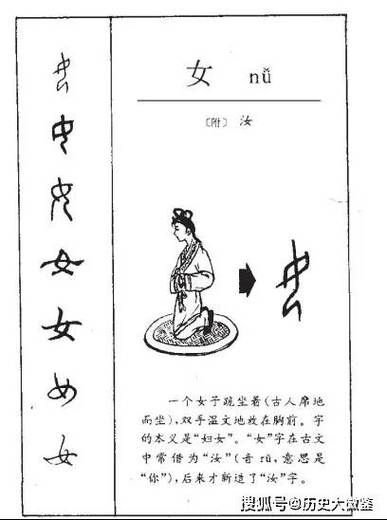 女 nǚ
〔附〕 汝
一个女子跪坐着(古人席地
而坐),双手温文地放在胸前。字
的本义是“妇女”。“女”字在古文
中常借为“汝”(音 rǔ,意思是
“你”),后来才新造了“汝”字。
女
女
女
搜狐号@历史大微鉴